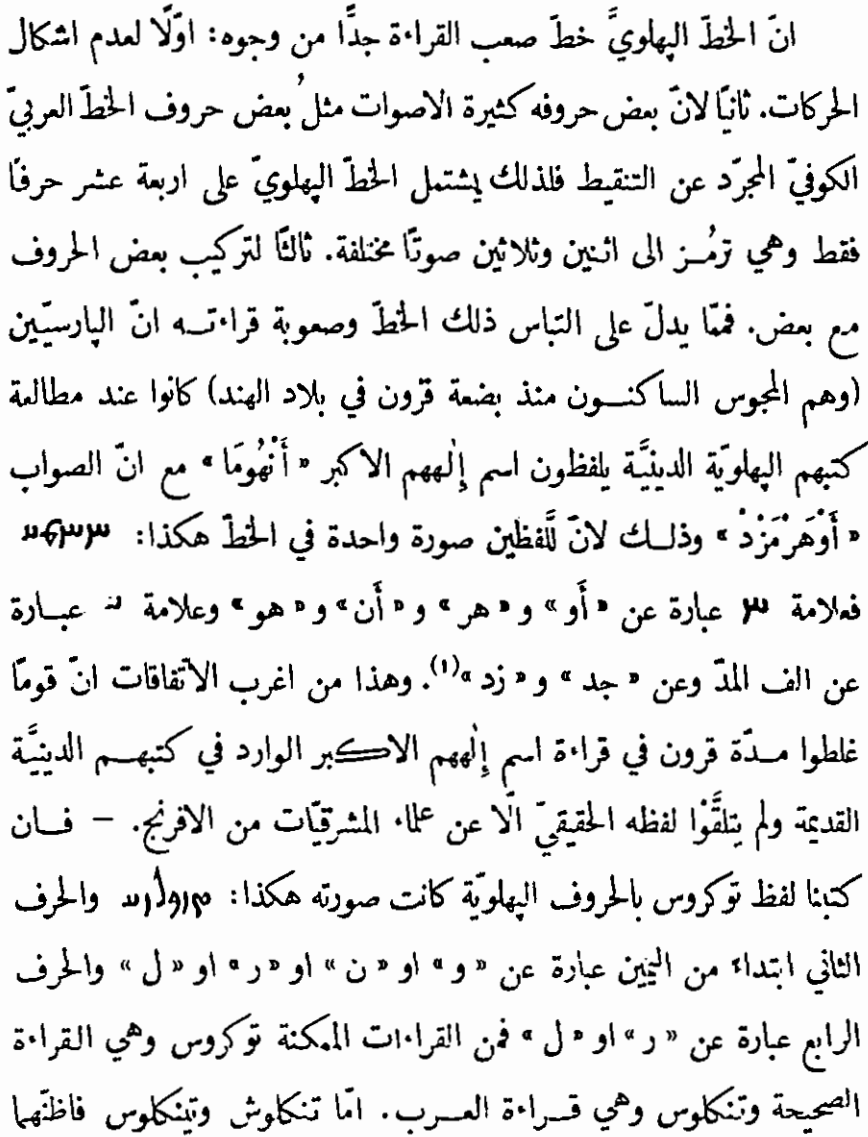 انّ الخطّ الپهلويَّ خطّ صعب القراءة جدًّا من وجوه: اوّلًا لعدم اشكال
الحركات. ثانيًا لانّ بعض حروفه كثيرة الاصوات مثلُ بعض حروف الخطّ العربيّ
الكوفيّ المجرّد عن التنقيط فلذلك يشتمل الخطّ الپهلويّ على اربعة عشر حرفًا
فقط وهي ترمُز الى اثنين وثلاثين صوتًا مختلفة. ثالثًا لتركيب بعض الحروف
مع بعض. فممّا يدلّ على التباس ذلك الخطّ وصعوبة قراءته انّ الپارسيّين
(وهم المجوس الساكنون منذ بضعة قرون في بلاد الهند) كانوا عند مطالعة
كتبهم الپهلويّة الدينيَّة يلفظون اسم إِلٰههم الاكبر « أَنْهُومَا » مع انّ الصواب
« أَوْهَرْمَزْدْ » وذلك لانّ لِلَّفظين صورة واحدة في الخطّ هكذا:
فعلامة عبارة عن « أَو » و « هر » و « أَن » و « هو » وعلامة عبارة
عن الف المدّ وعن « جد » و « زد »(١). وهذا من اغرب الاتّفاقات انّ قومًا
غلطوا مدّة قرون في قراءة اسم إِلٰههم الاكبر الوارد في كتبهم الدينيَّة
القديمة ولم يتلقَّوْا لفظه الحقيقيّ الّا عن علماء المشرقيّات من الافرنج. – فان
كتبنا لفظ توكروس بالحروف الپهلويّة كانت صورته هكذا: والحرف
الثاني ابتداءً من اليمين عبارة عن « و » او « ن » او « ر » او « ل » والحرف
الرابع عبارة عن « ر » او « ل » فمن القراءات الممكنة توكروس وهي القراءة
الصحيحة وتنكلوس وهي قراءة العرب. امّا تنكلوش وتينكلوس فاظنّهما